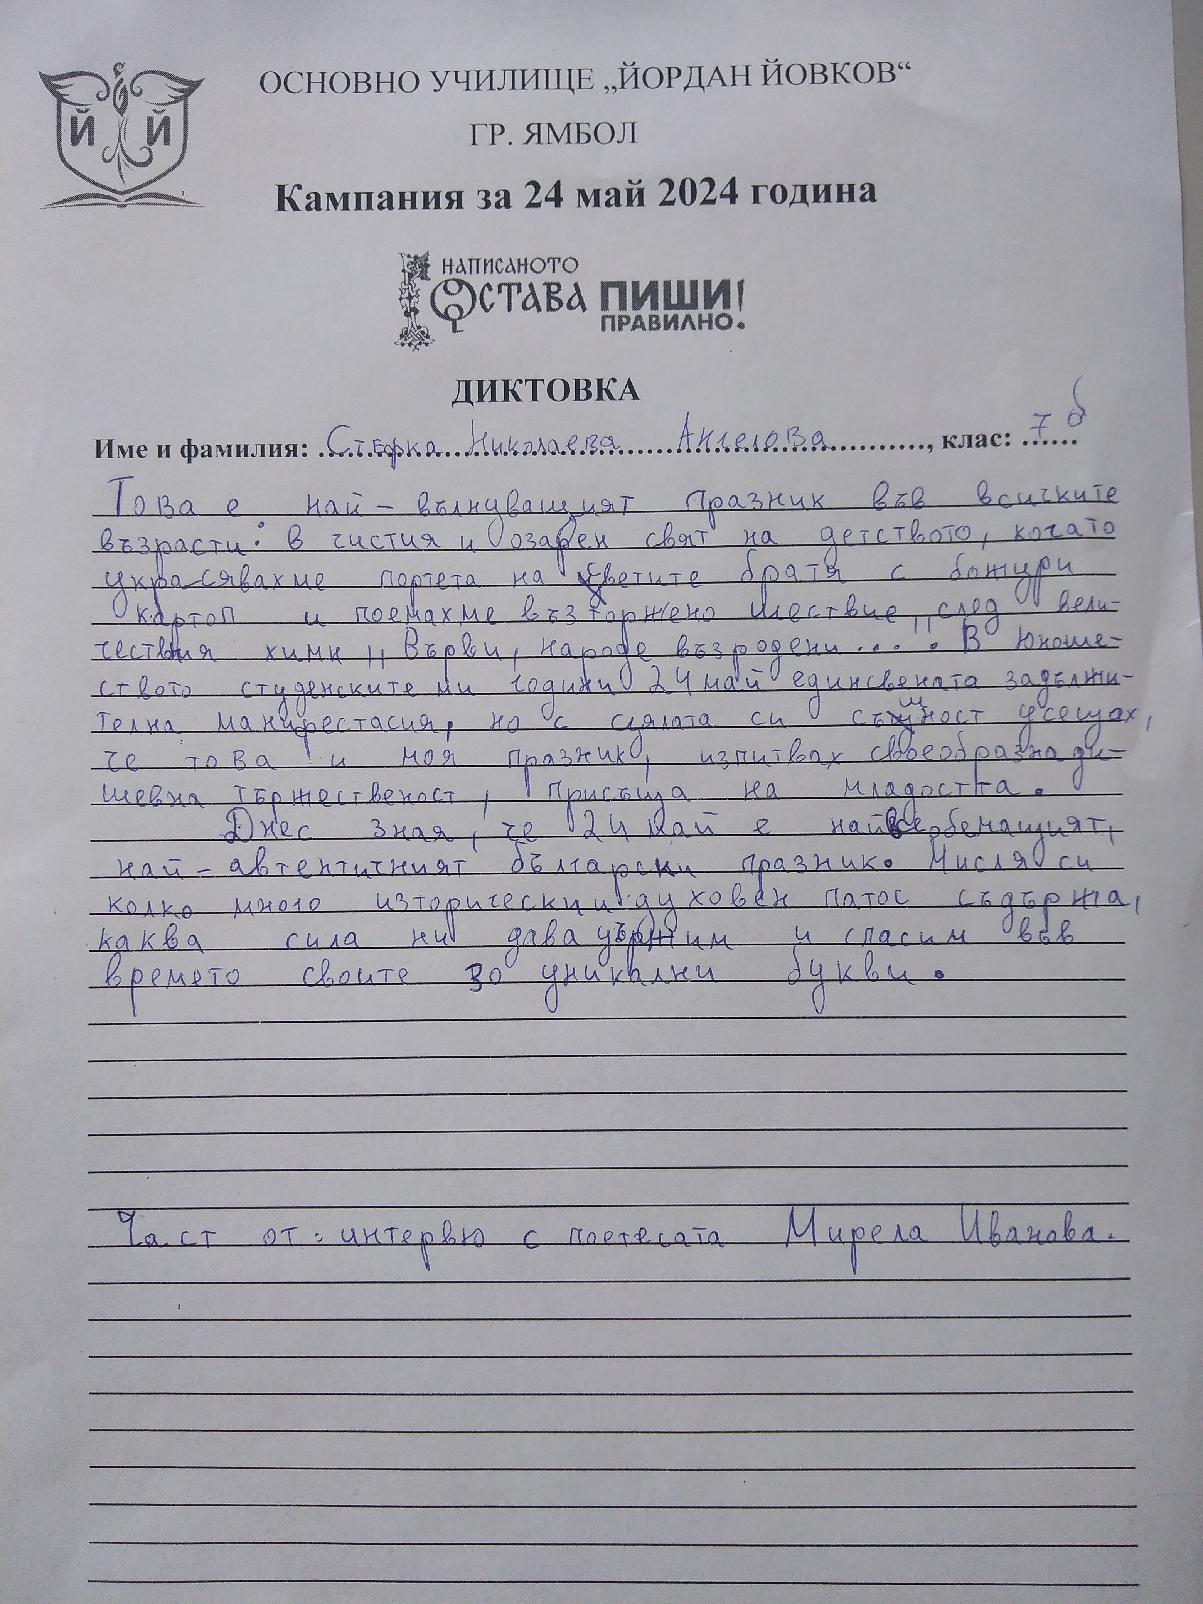 Й Й
ОСНОВНО УЧИЛИЩЕ „ЙОРДАН ЙОВКОВ“
ГР. ЯМБОЛ
Кампания за 24 май 2024 година
НАПИСАНОТО
ОСТАВА ПИШИ!
ПРАВИЛНО.
ДИКТОВКА
Име и фамилия: Стефка Николаева Ангелова, клас: 7 б
Това е най-вълнуващият празник във всичките
възрасти: в чистия и озарен свят на детството, когато
украсявахме портета на светите братя с божури
картоп и поемахме възторжено шествие след вели-
чествия химн „Върви, народе възродени...“. В юноше-
ството студенските ми години 24 май единсвената задължи-
телна манифестасия, но с цялата си същност усещах,
че това и моя празник, изпитвах своеобразна ду-
шевна тържественост, присъща на младостта.
Днес зная, че 24 май е най все обемащият,
най-автентичният български празник. Мисля си
колко много изторически и духовен патос съдържа,
каква сила ни дава държим и спасим във
времето своите 30 уникални букви.
Част от: интервю с поетесата Мирела Иванова.